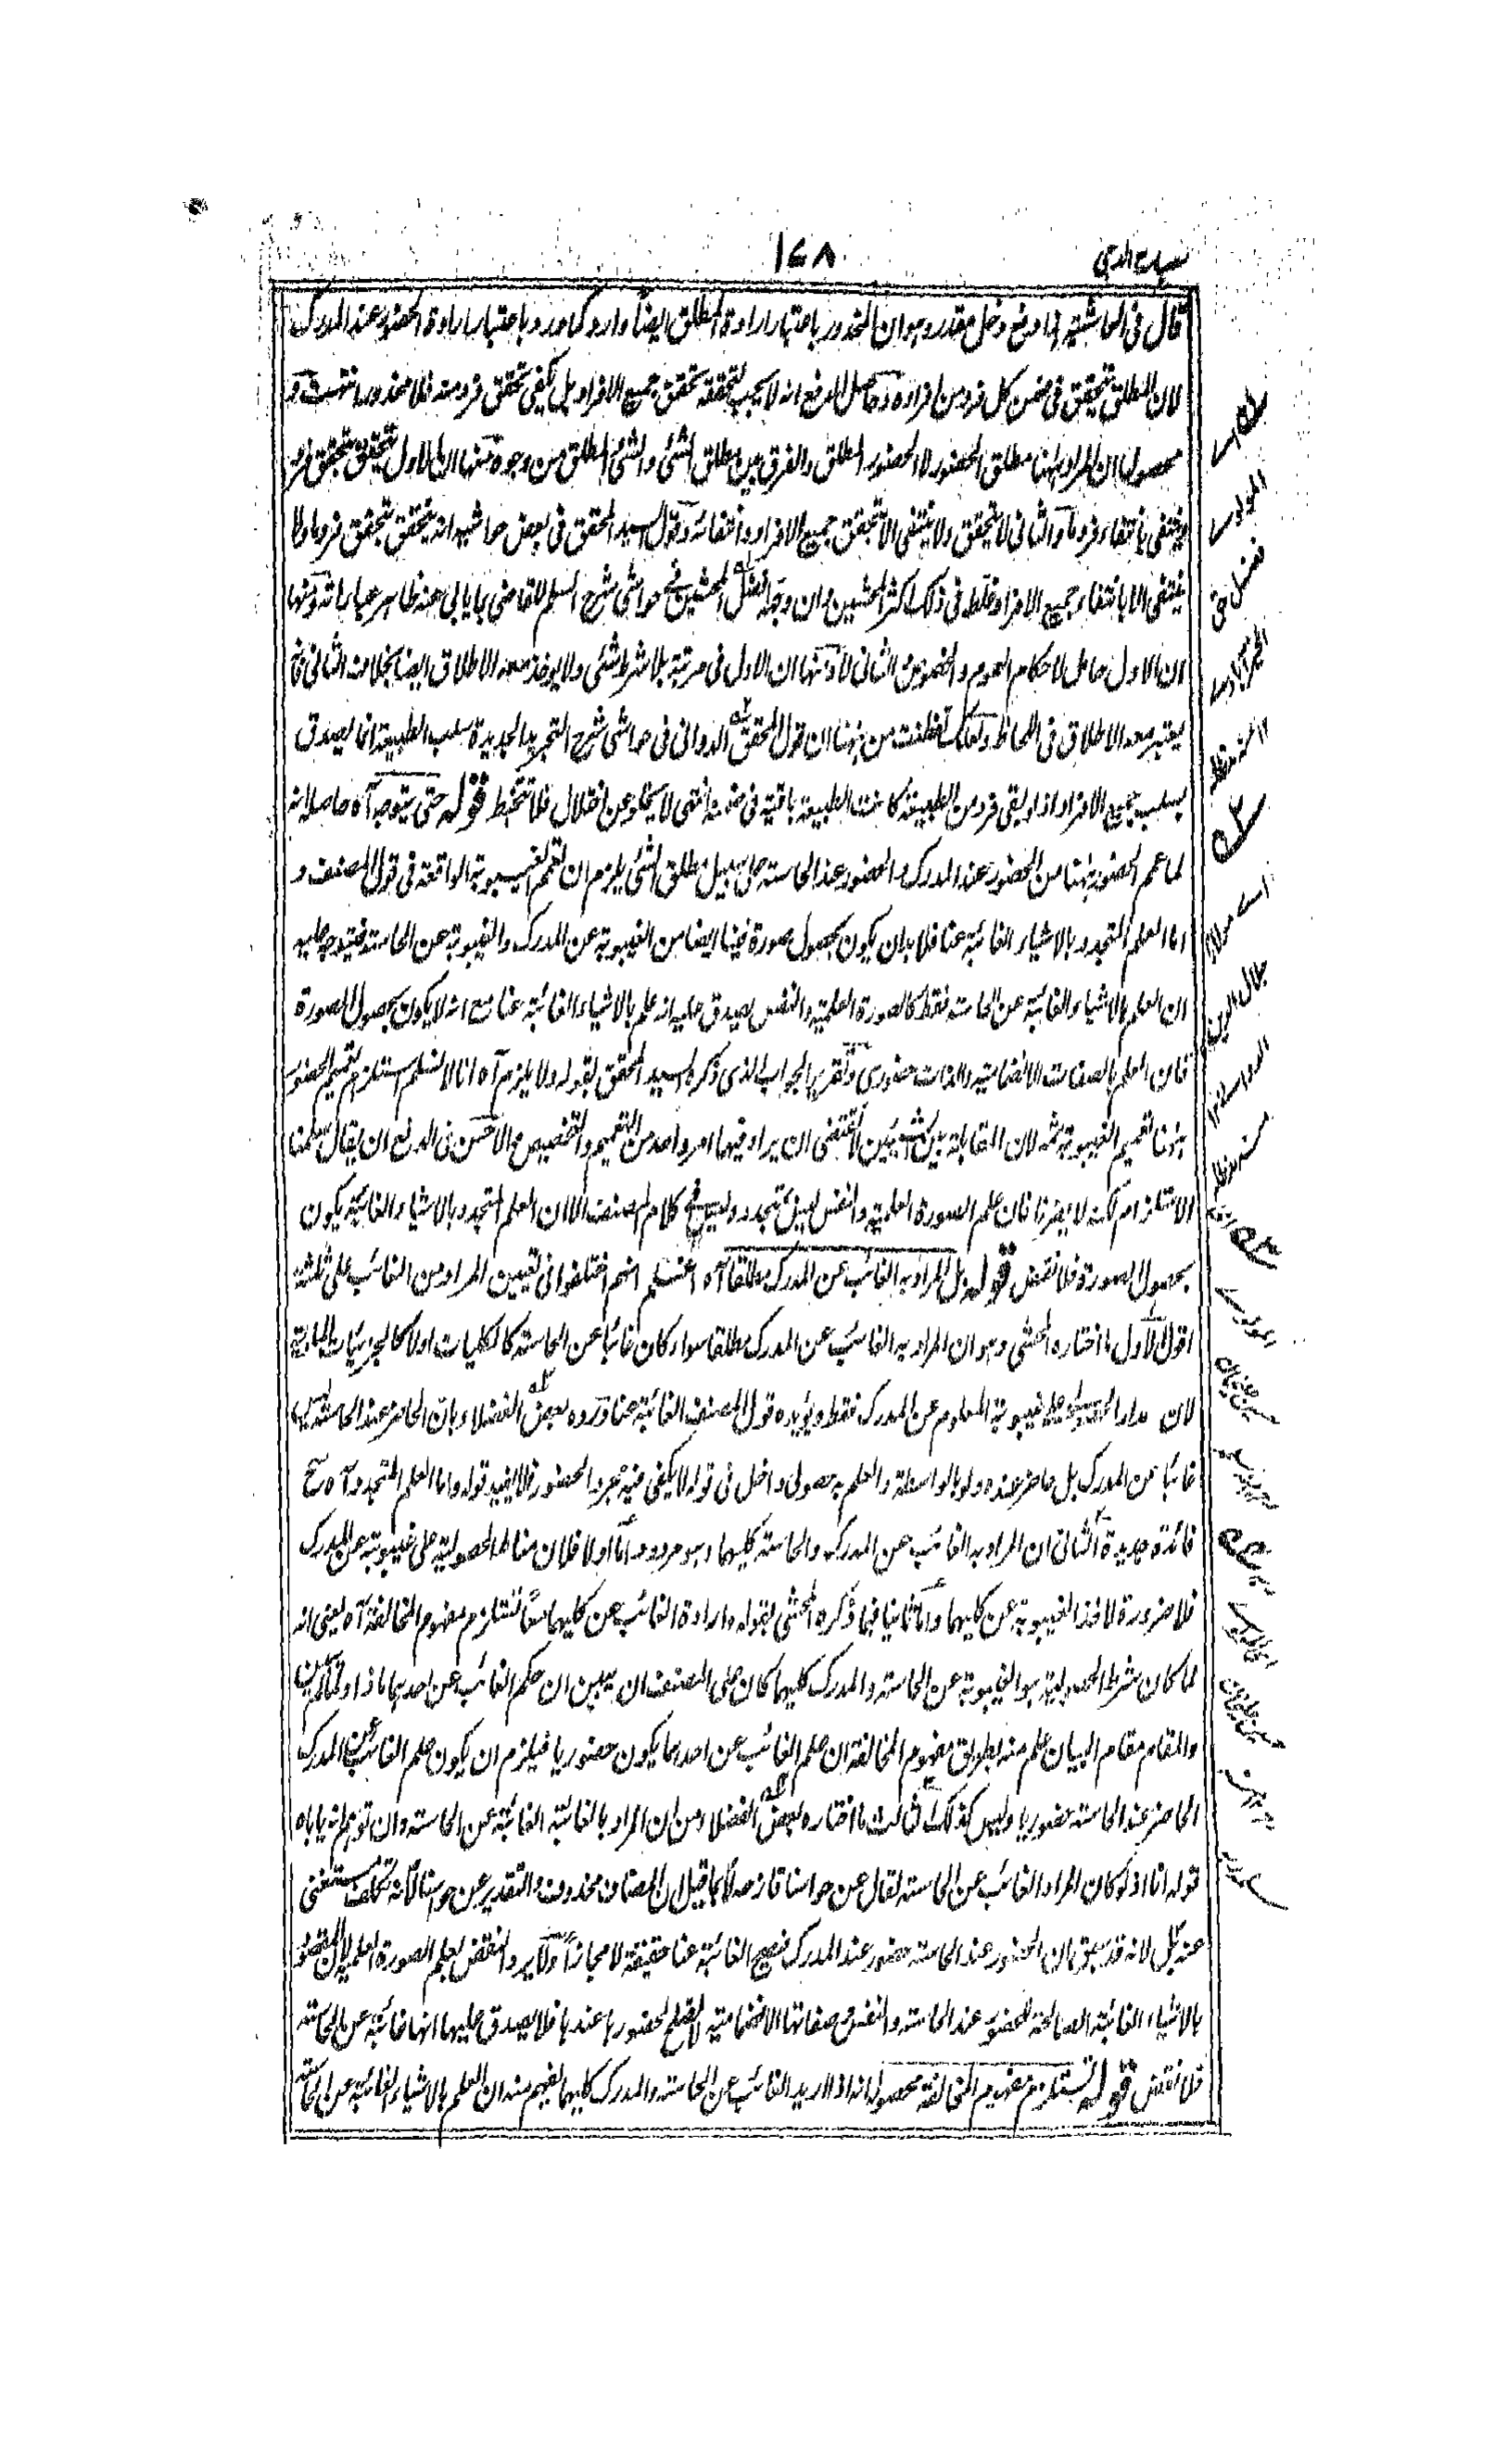 ١٦٨
قال فى الحاشية هذا دفع دخل مقدر وهو ان المحذور باعتبار ارادة المطلق ايضا وارد كما ورد باعتبار ارادة الحضور عند المدرك
لان المطلق يتحقق فى ضمن كل فرد من افراده وحاصل الدفع انه لا يجب لتحققه تحقق جميع الافراد بل يكفى تحقق فرد منه فلا محذور انتهت و
محصوله ان المراد ههنا مطلق الحضور لا الحضور المطلق والفرق بين مطلق الشئ والشئ المطلق من وجوه منها ان الاول يتحقق بتحقق فرد
وينتفى بانتفاء فرد ما والثانى لا يتحقق ولا ينتفى الا بتحقق جميع الافراد وانتفائه وقول السيد المحقق فى بعض حواشيه انه يتحقق بتحقق فرد ما ولا
ينتفى الا بانتفاء جميع الافراد غلط فى ذلك اكثر المحشين وان وجه افضل المحشين فى حواشى شرح السلم للقاضى بما يابى عنه ظاهر عباراته ومنها
ان الاول حامل لاحكام العموم والخصوص والثانى لا ومنها ان الاول فى مرتبة بلا شرط شئ ولا يوخذ معه الاطلاق ايضا بخلاف الثانى فانه
يعتبر معه الاطلاق فى اللحاظ ولعلك تفطنت من ههنا ان قول المحقق الدوانى فى حواشى شرح التجريد الجديدة سلب الطبيعة انما يصدق
بسلب جميع الافراد اذ لو بقى فرد من الطبيعة كانت الطبيعة باقية فى ضمنه انتهى لا يخلو عن اختلال فلا تتخبط قوله حتى يتوجه آه حاصله انه
لما عمم الحضور ههنا من الحضور عند المدرك والحضور عند الحاسة على سبيل مطلق الشئ يلزم ان تعمم الغيبوبة الواقعة فى قول المصنف و
اما العلم المتجدد بالاشياء الغائبة عنا فلا بد ان يكون بحصول صورة فينا ايضا من الغيبوبة عن المدرك والغيبوبة عن الحاسة فيتوجه عليه
ان العلم بالاشياء الغائبة عن الحاسة فقط كالصورة العلمية والنفس يصدق عليه انه علم بالاشياء الغائبة عنا مع انه لا يكون بحصول الصورة
فان العلم بالصفات الانضمامية والذات حضورى وتقرير الجواب الذى ذكره السيد المحقق بقوله ولا يلزم آه انا لا نسلم استلزام تعميم الحضور
ههنا تعميم الغيبوبة ثمه لان المقابلة بين الشيئين لا تقتضى ان يراد فيهما امر واحد من التعميم والتخصيص والاحسن فى الدفع ان يقال سلمنا
الاستلزام لكنه لا يضرنا فان علم الصورة العلمية والنفس ليس بمتجدد وليس فى كلام المصنف الا ان العلم المتجدد بالاشياء الغائبة يكون
بحصول الصورة فلا نقض قوله بل المراد به الغائب عن المدرك مطلقا آه اعلم انهم اختلفوا فى تعيين المراد من الغائب على ثلثة
اقوال الاول ما اختاره المحشى وهو ان المراد به الغائب عن المدرك مطلقا سواء كان غائبا عن الحاسة كالكليات اولا كالجزئيات المادية
لان مدار الحصولية على غيبوبة المعلوم عن المدرك فقط ويؤيده قول المصنف الغائبة عنا ورده بعض الفضلاء بان الحاضر عند الحاسة ليس
غائبا عن المدرك بل حاضر عنده ولو بالواسطة والعلم به حصولى داخل فى قوله لا يكفى فيه مجرد الحضور فلا يفيد قوله واما العلم المتجدد آه ح
فائدة جديدة الثانى ان المراد به الغائب عن المدرك والحاسة كليهما وهو مردود اما اولا فلان مناط الحصولية على غيبوبته عن المدرك
فلا ضرورة لاخذ الغيبوبة عن كليهما واما ثانيا فبما ذكره المحشى بقوله وارادة الغائب عن كليهما معا تستلزم مفهوم المخالفة آه يعنى انه
لما كان شرط الحصولية هو الغيبوبة عن الحاسة والمدرك كليهما كان على المصنف ان يبين ان حكم الغائب عن احدهما ماذا ولما لم يبين
والمقام مقام البيان علم منه بطريق مفهوم المخالفة ان علم الغائب عن احدهما يكون حضوريا فيلزم ان يكون علم الغائب عن المدرك
الحاضر عند الحاسة حضوريا وليس كذلك الثالث ما اختاره بعض الفضلاء من ان المراد بالغائبة الغائبة عن الحاسة وان توهم انه ياباه
قوله عنا اذ لو كان المراد الغائب عن الحاسة لقال عن حواسنا فازحه لا بما قيل ان المضاف محذوف والتقدير عن حواسنا لانه تكلف مستغنى
عنه بل لانه قد سبق ان الحضور عند الحاسة حضور عند المدرك فيصح الغائبة عنا حقيقة لا مجازا ولا يرد النقض بعلم الصورة العلمية لان المقصود
بالاشياء الغائبة الصالحة للحضور عند الحاسة والنفس وصفاتها الانضمامية لا تصلح لحضورها عندها فلا يصدق عليها انها غائبة عن الحاسة
فلا نقض قوله تستلزم مفهوم المخالفة محصوله انه اذا اريد الغائب عن الحاسة والمدرك كليهما يفهم منه ان العلم بالاشياء الغائبة عن الحاسة